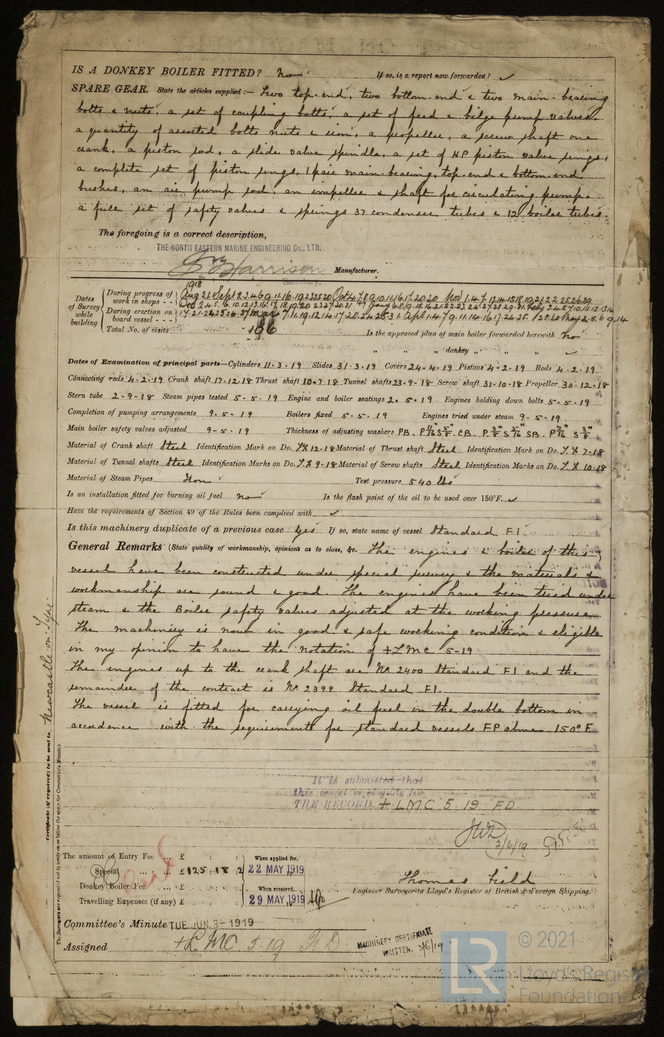 IS A DONKEY BOILER FITTED? No If so, is a report now forwarded? ✓
SPARE GEAR. State the articles supplied:— Two top-end, two bottom-end & two main-bearing
bolts & nuts, a set of coupling bolts, a set of feed & bilge pump valves
a quantity of assorted bolts nuts & iron, a propeller, a screw shaft one
crank, a piston rod, a slide valve spindle, a set of HP piston valve rings,
a complete set of piston rings, 1 pair main bearing, top-end & bottom-end
bushes, an air pump rod, an impeller & shaft for circulating pump
a full set of safety valves & springs 37 condenser tubes & 12 boiler tubes.
The foregoing is a correct description,
THE NORTH EASTERN MARINE ENGINEERING CO., LTD.
Harrison Manufacturer.
Secretary.
1918
Dates of Survey while building
During progress of work in shops - -
During erection on board vessel - - -
Total No. of visits 186
Is the approved plan of main boiler forwarded herewith no
" " " donkey " " "
Dates of Examination of principal parts—Cylinders 11-3-19 Slides 31-3-19 Covers 24-4-19 Pistons 4-2-19 Rods 4-2-19
Connecting rods 4-2-19 Crank shaft 17-12-18 Thrust shaft 10-7-18 Tunnel shafts 23-9-18 Screw shaft 31-10-18 Propeller 30-12-18
Stern tube 2-9-18 Steam pipes tested 5-5-19 Engine and boiler seatings 2-5-19 Engines holding down bolts 5-5-19
Completion of pumping arrangements 9-5-19 Boilers fixed 5-5-19 Engines tried under steam 9-5-19
Main boiler safety valves adjusted 9-5-19 Thickness of adjusting washers
Material of Crank shaft Steel Identification Mark on Do. LX 12-18 Material of Thrust shaft Steel Identification Mark on Do. LX 7-18
Material of Tunnel shafts Steel Identification Marks on Do. LX 9-18 Material of Screw shafts Steel Identification Marks on Do. LX 10-18
Material of Steam Pipes Iron Test pressure 540 lbs
Is an installation fitted for burning oil fuel no Is the flash point of the oil to be used over 150°F. ✓
Have the requirements of Section 49 of the Rules been complied with ✓
Is this machinery duplicate of a previous case Yes If so, state name of vessel Standard F1
General Remarks (State quality of workmanship, opinions as to class, &c. The engines & boilers of this
vessel have been constructed under special survey & the materials &
workmanship are sound & good The engines have been tried under
steam & the Boiler safety valves adjusted at the working pressure.
The machinery is now in good & safe working condition & eligible
in my opinion to have the notation of +LMC 5-19
The engines up to the crank shaft are No 2400 Standard F1 and the
remainder of the contract is No 2399 Standard F1.
The vessel is fitted for carrying oil fuel in the double bottom in
accordance with the requirements for standard vessels FP above 150° F
It is submitted that
this vessel is eligible for
THE RECORD. + LMC 5.19 FD
JWD
3/6/19
The amount of Entry Fee .. £ : :
Special .. .. £ 125 : 18 : 2
Donkey Boiler Fee .. .. £ : :
Travelling Expenses (if any) £ : :
When applied for,
22 MAY 1919
When received,
29 MAY 1919
Thomas Field
Engineer Surveyor to Lloyd's Register of British & Foreign Shipping.
Committee's Minute TUE JUN. 3-1919
Assigned + LMC 5.19 FD
MACHINERY CERTIFICATE
WRITTEN. 3/6/19
Certificate (if required) to be sent to Newcastle-on-Tyne.
LR
© 2021
Lloyd's Register
Foundation